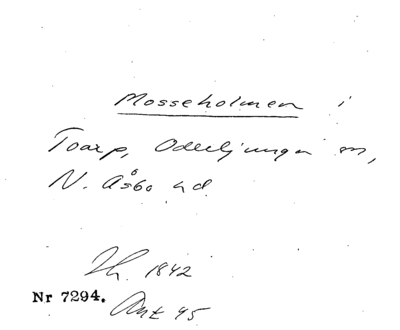 Mosseholmen i
Toarp, Oderljunga sn,
N. Åsbo hd.
Jh. 1842
Nr 7294.
Ant 45